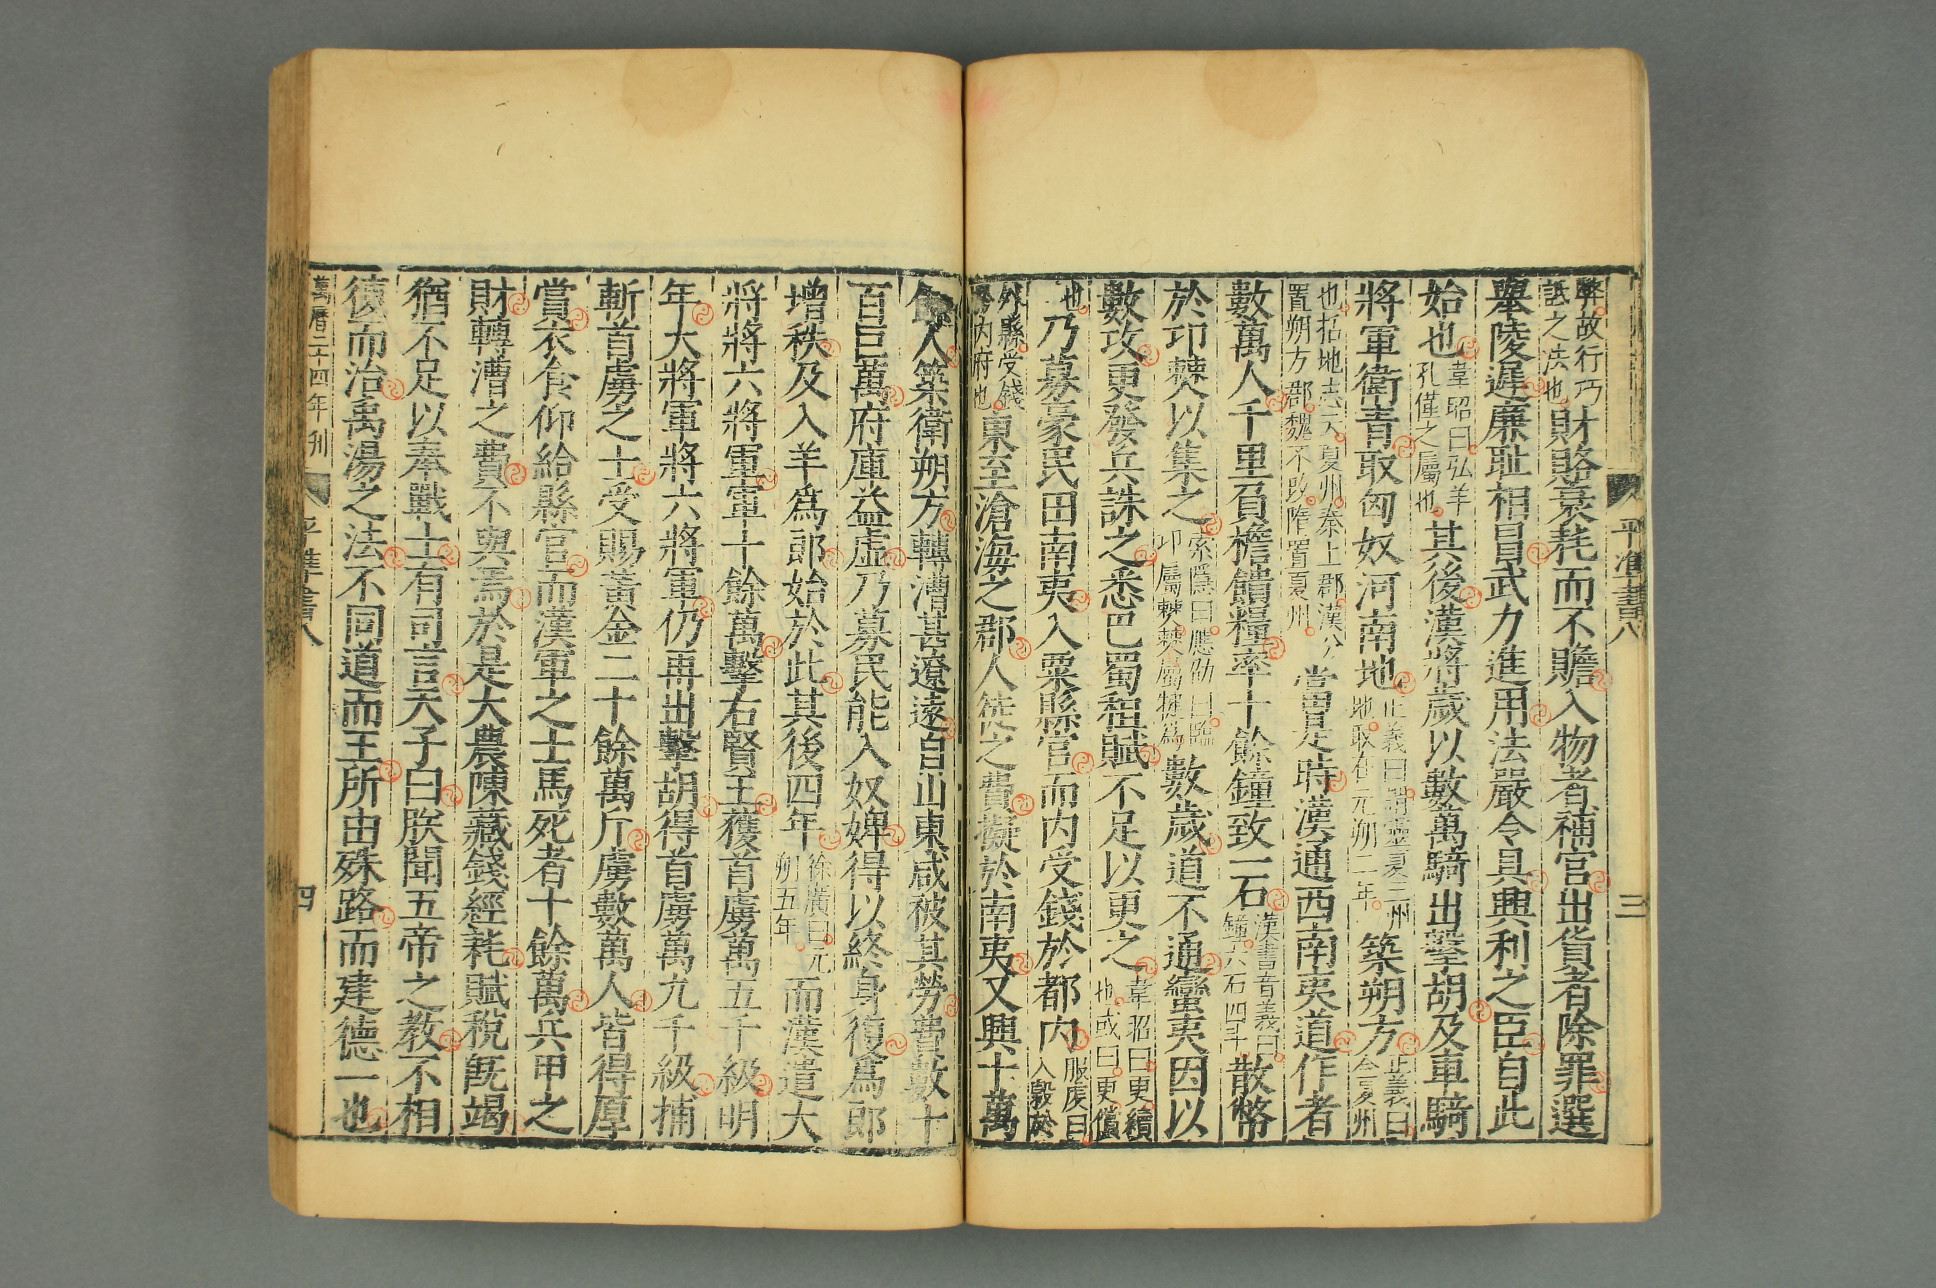 弊故行巧
詆之法也財賂衰耗而不贍入物者補官出貨者除罪選
舉陵遲廉恥相冒武力進用法嚴令具興利之臣自此
始也韋昭曰弘羊孔僅之屬也其後漢將歲以數萬騎出擊胡及車騎
將軍衛青取匈奴河南地正義曰謂靈夏三州地取在元朔二年築朔方正義曰今夏州
也括地志云夏州秦上郡漢分置朔方郡魏不改隋置夏州當是時漢通西南夷道作者
數萬人千里負擔饋糧率十餘鐘致一石漢書音義曰鐘六石四斗散幣
於邛僰以集之索隱曰應劭曰臨邛屬僰僰屬犍爲數歲道不通蠻夷因以
數攻更發兵誅之悉巴蜀租賦不足以更之韋昭曰更續也或曰更償
也乃募豪民田南夷入粟縣官而內受錢於都內服虔曰入穀於
外縣受錢於內府也東至滄海之郡人徒之費擬於南夷又興十萬
餘人築衛朔方轉漕甚遼遠自山東咸被其勞費數十
百巨萬府庫益虛乃募民能入奴婢得以終身復爲郎
增秩及入羊爲郎始於此其後四年徐廣曰元朔五年而漢遣大
將將六將軍軍十餘萬擊右賢王獲首虜萬五千級明
年大將軍將六將軍仍再出擊胡得首虜萬九千級捕
斬首虜之士受賜黃金二十餘萬斤虜數萬人皆得厚
賞衣食仰給縣官而漢軍之士馬死者十餘萬兵甲之
財轉漕之費不與焉於是大農陳藏錢經耗賦稅既竭
猶不足以奉戰士有司言天子曰朕聞五帝之教不相
復而治禹湯之法不同道而王所由殊路而建德一也
萬曆二十四年刊
平準書八
四
平準書八
三